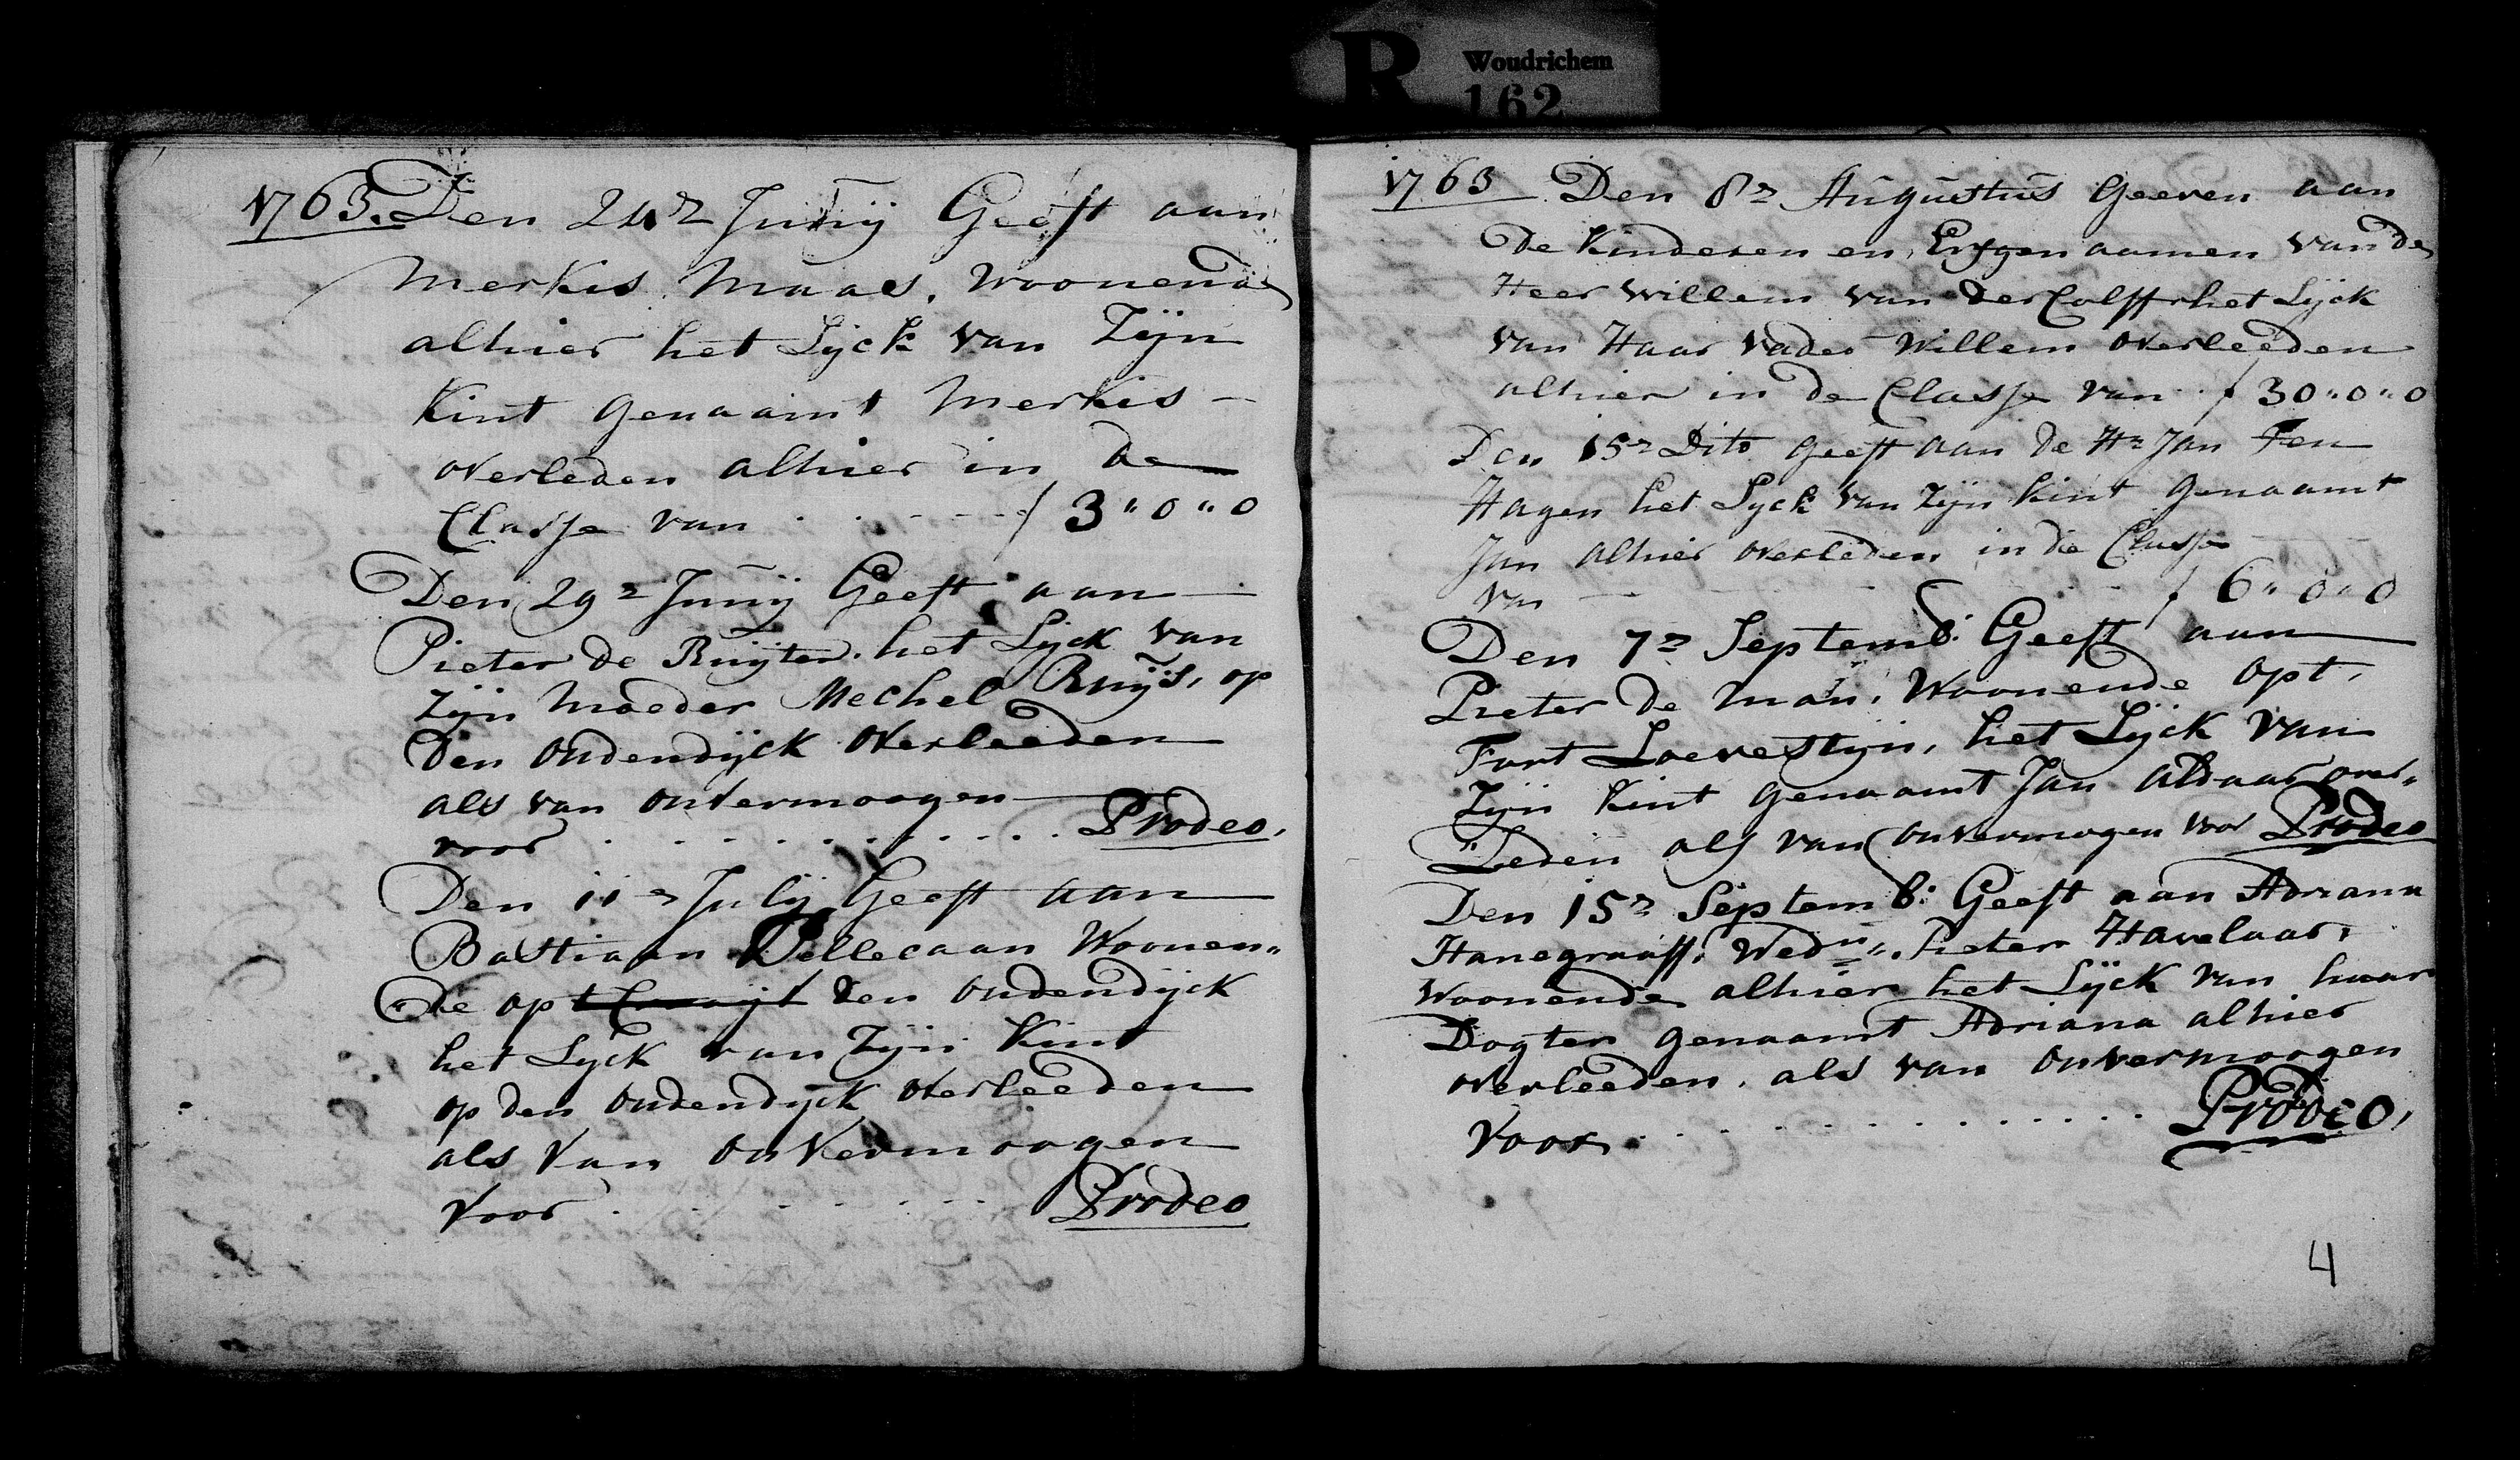 R Woudrichem
162
1763. Den 24e Junij Geeft aan
Merkis Maas, woonende
alhier het Lijck van Zijn
Kint genaamt Merkis –
overleden alhier in de
Classe van . . . . . f 3"0"0
Den 29e Junij Geeft aan
Pieter de Ruijter. het Lijck van
Zijn Moeder Mechel Ruijs, op
Den oudendijck overleeden
als van onvermoogen
voor . . . . . . . . . . . Prodeo,
Den 11e Julij Geeft aan
Bastiaan Pellecaan Woonen„
„de op den oudendijck
het Lyck van Zijn Kint
op den oudendijck overleeden
als van onvermoogen
Voor . . . . . . . Prodeo
1763 Den 8e Augustus Geeven aan
De Kinderen en Erfgenaamen van de
Heer Willem van der Colff het Lijck
van Haar vader Willem overleeden
alhier in de Classe van . f 30"0"0
Den 15e Dito geeft aan de Hr Jan Ten
Hagen het Lyck van Zijn Kint genaamt
Jan alhier overleden in die Classe
van – – – f 6"0"0
Den 7e Septemb: Geeft aan
Pieter de Man, Woonende opt,
Fort Loevestijn, het Lijck van
Zijn Kint genaamt Jan aldaar over„
„Leden als van onvermogen voor Prodeo
Den 15e Septemb: Geeft aan Adriana
Hanegraaff, Wedue. Pieter Havelaar,
Woonende alhier het Lijck van haar
Dogter genaamt Adriana alhier
overleeden, als van onvermoogen
Voor . . . . . . . . . . . . Prodeo,
4